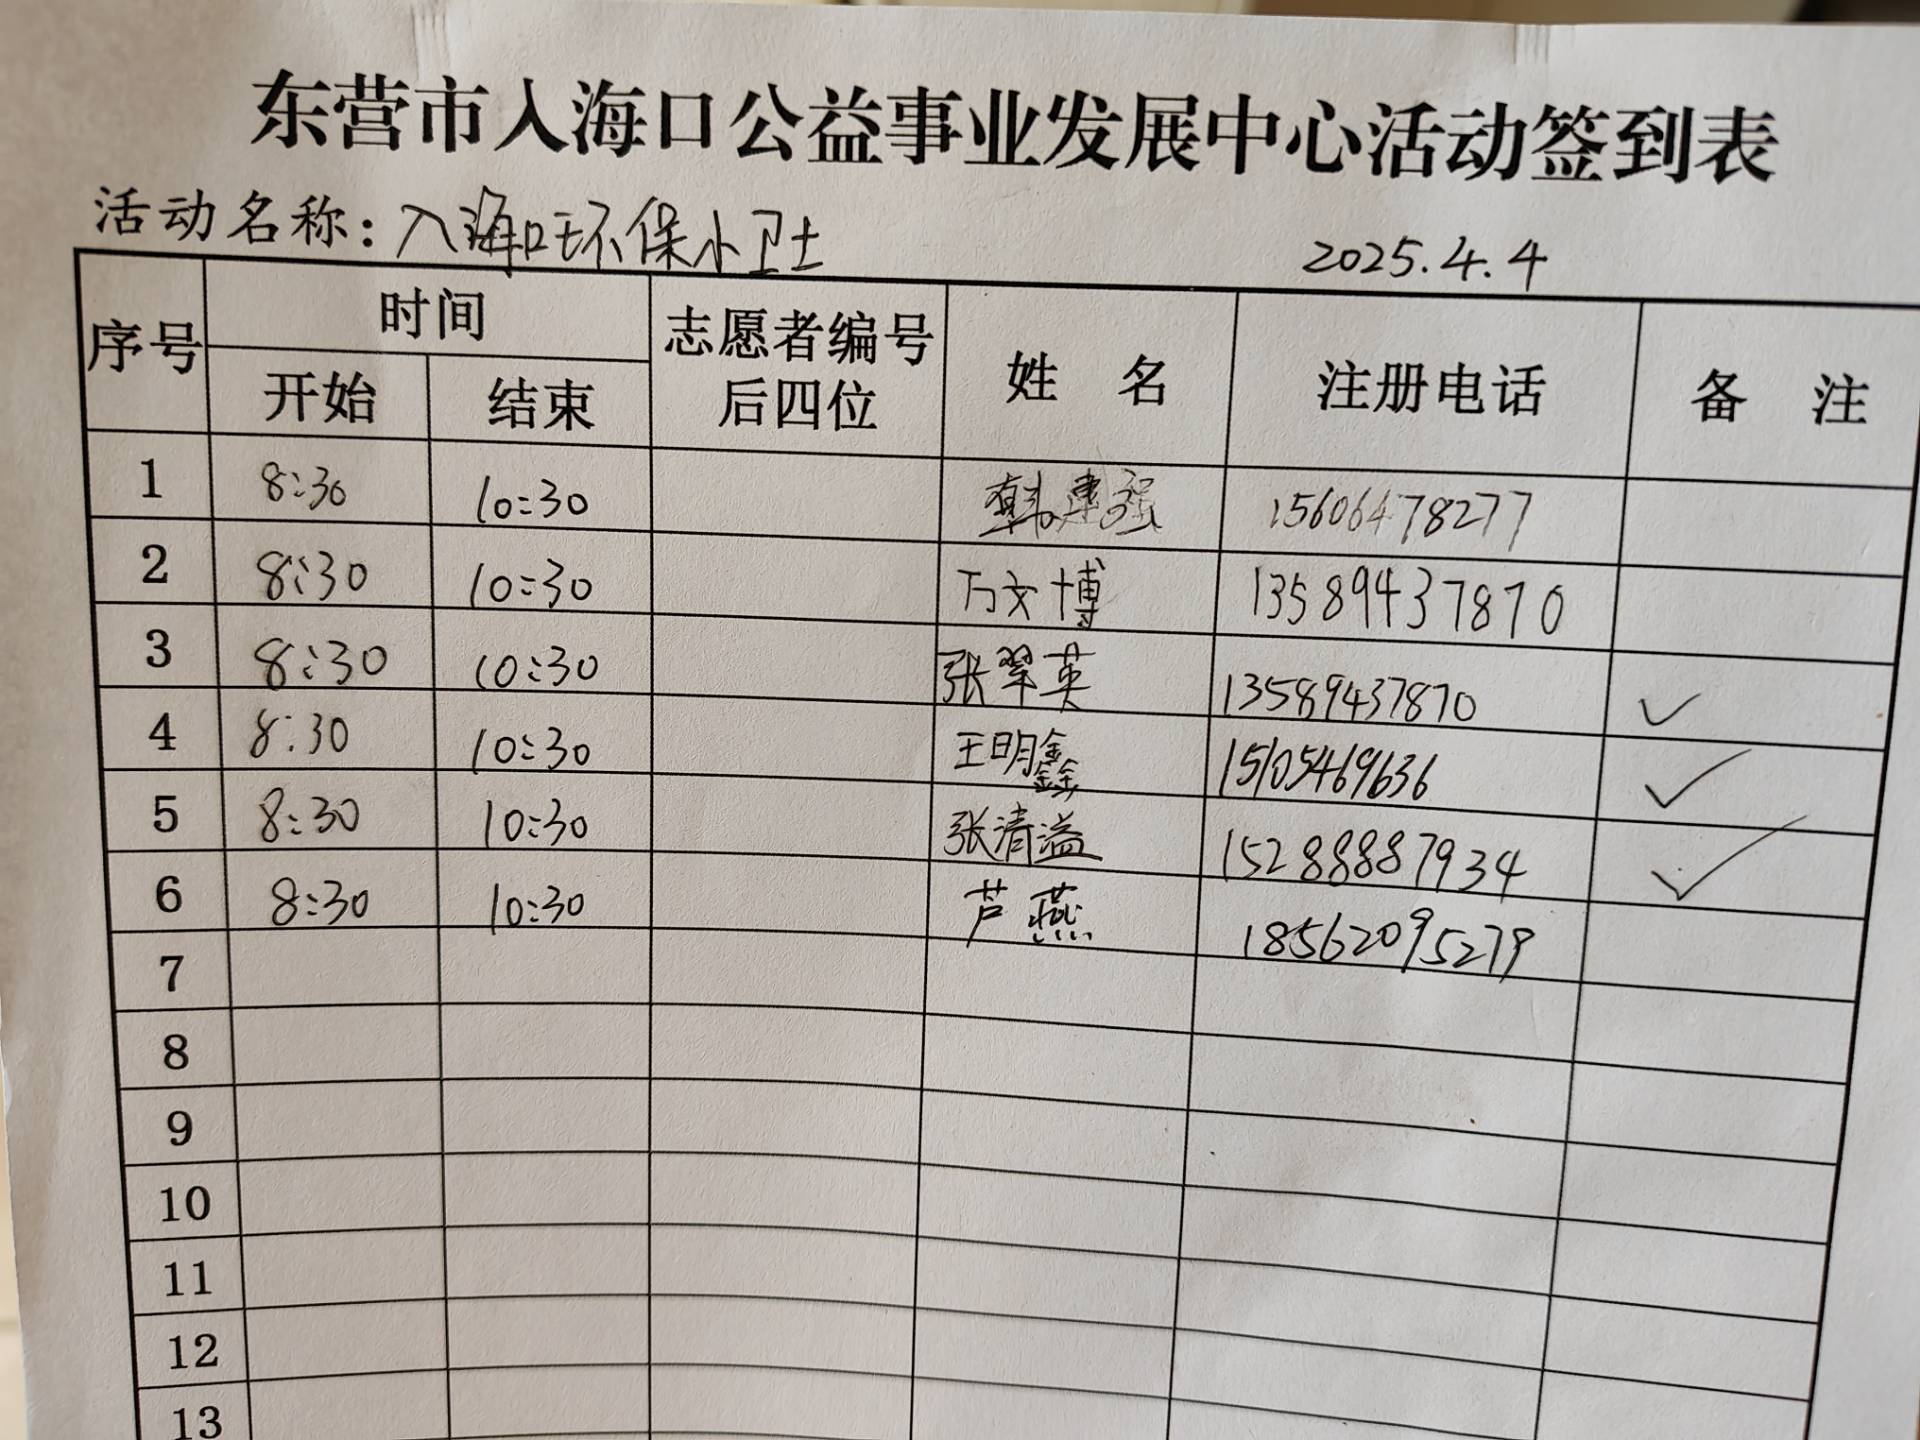 东营市入海口公益事业发展中心活动签到表
活动名称：入海口环保小卫士 2025.4.4
序号 时间 志愿者编号后四位 姓 名 注册电话 备 注
开始 结束
1 8:30 10:30 韩建强 15606478277
2 8:30 10:30 万文博 13589437870
3 8:30 10:30 张翠英 13589437870 ✓
4 8:30 10:30 王明鑫 15105469636 ✓
5 8:30 10:30 张清溢 15288887934 ✓
6 8:30 10:30 芦燕 18562095279
7
8
9
10
11
12
13